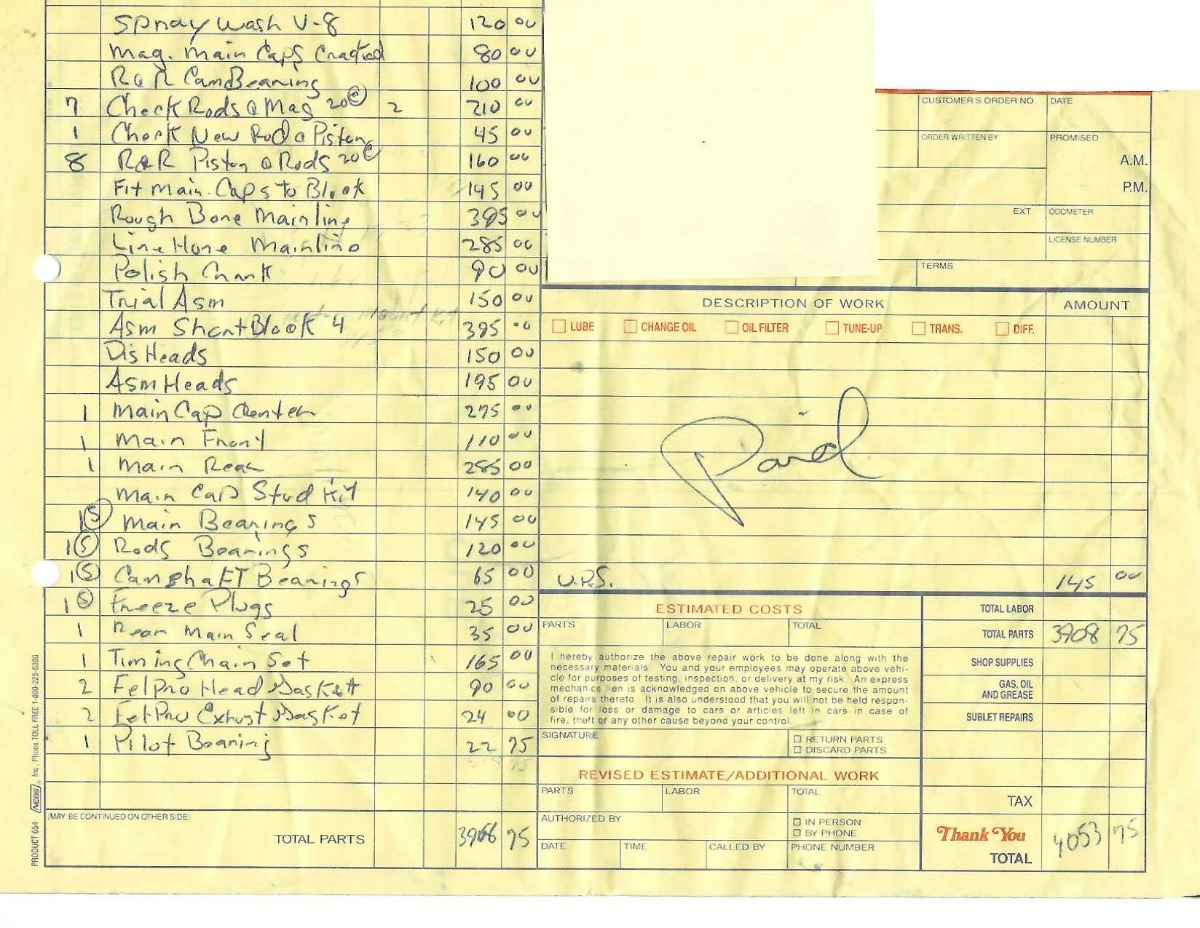 Spray Wash V-8 120 00
Mag. Main Caps Cracked 80 00
R&R Cam Bearing 100 00
7 Check Rods & Mag 20 2 210 00
1 Check New Rod & Piston 45 00
8 R&R Piston & Rods 20 160 00
Fit Main Caps to Block 145 00
Rough Bore Mainline 00
Line Hone Mainline 285 00
Polish Crank 90 00
Trial Asm 150 00
Asm Short Block 4 395 00
Dis Heads 150 00
Asm Heads 195 00
1 Main Cap Center 275 00
1 Main Front 110 00
1 Main Rear 285 00
Main Cap Stud Kit 140 00
1 S Main Bearings 145 00
1 S Rods Bearings 120 00
1 S Camshaft Bearings 65 00
1 S Freeze Plugs 25 00
1 Rear Main Seal 35 00
1 Timing Chain Set 165 00
2 FelPro Head Gaskett 90 00
2 FelPro Exhust Gasket 24 00
1 Pilot Bearing 22 75
(MAY BE CONTINUED ON OTHER SIDE)
TOTAL PARTS 75
PRODUCT 654 NEBS Inc. Phone TOLL FREE 1-800-225-6380
CUSTOMER'S ORDER NO. DATE
ORDER WRITTEN BY PROMISED
A.M.
P.M.
EXT. ODOMETER
LICENSE NUMBER
TERMS
DESCRIPTION OF WORK AMOUNT
LUBE CHANGE OIL OIL FILTER TUNE-UP TRANS. DIFF.
Paid
U.P.S. 145 00
ESTIMATED COSTS
PARTS LABOR TOTAL
I hereby authorize the above repair work to be done along with the
necessary materials. You and your employees may operate above vehi-
cle for purposes of testing, inspection, or delivery at my risk. An express
mechanics lien is acknowledged on above vehicle to secure the amount
of repairs thereto. It is also understood that you will not be held respon-
sible for loss or damage to cars or articles left in cars in case of
fire, theft or any other cause beyond your control.
SIGNATURE
RETURN PARTS
DISCARD PARTS
REVISED ESTIMATE/ADDITIONAL WORK
PARTS LABOR TOTAL
AUTHORIZED BY
IN PERSON
BY PHONE
DATE TIME CALLED BY PHONE NUMBER
TOTAL LABOR
TOTAL PARTS 3908 75
SHOP SUPPLIES
GAS, OIL
AND GREASE
SUBLET REPAIRS
TAX
Thank You
TOTAL 4053 75